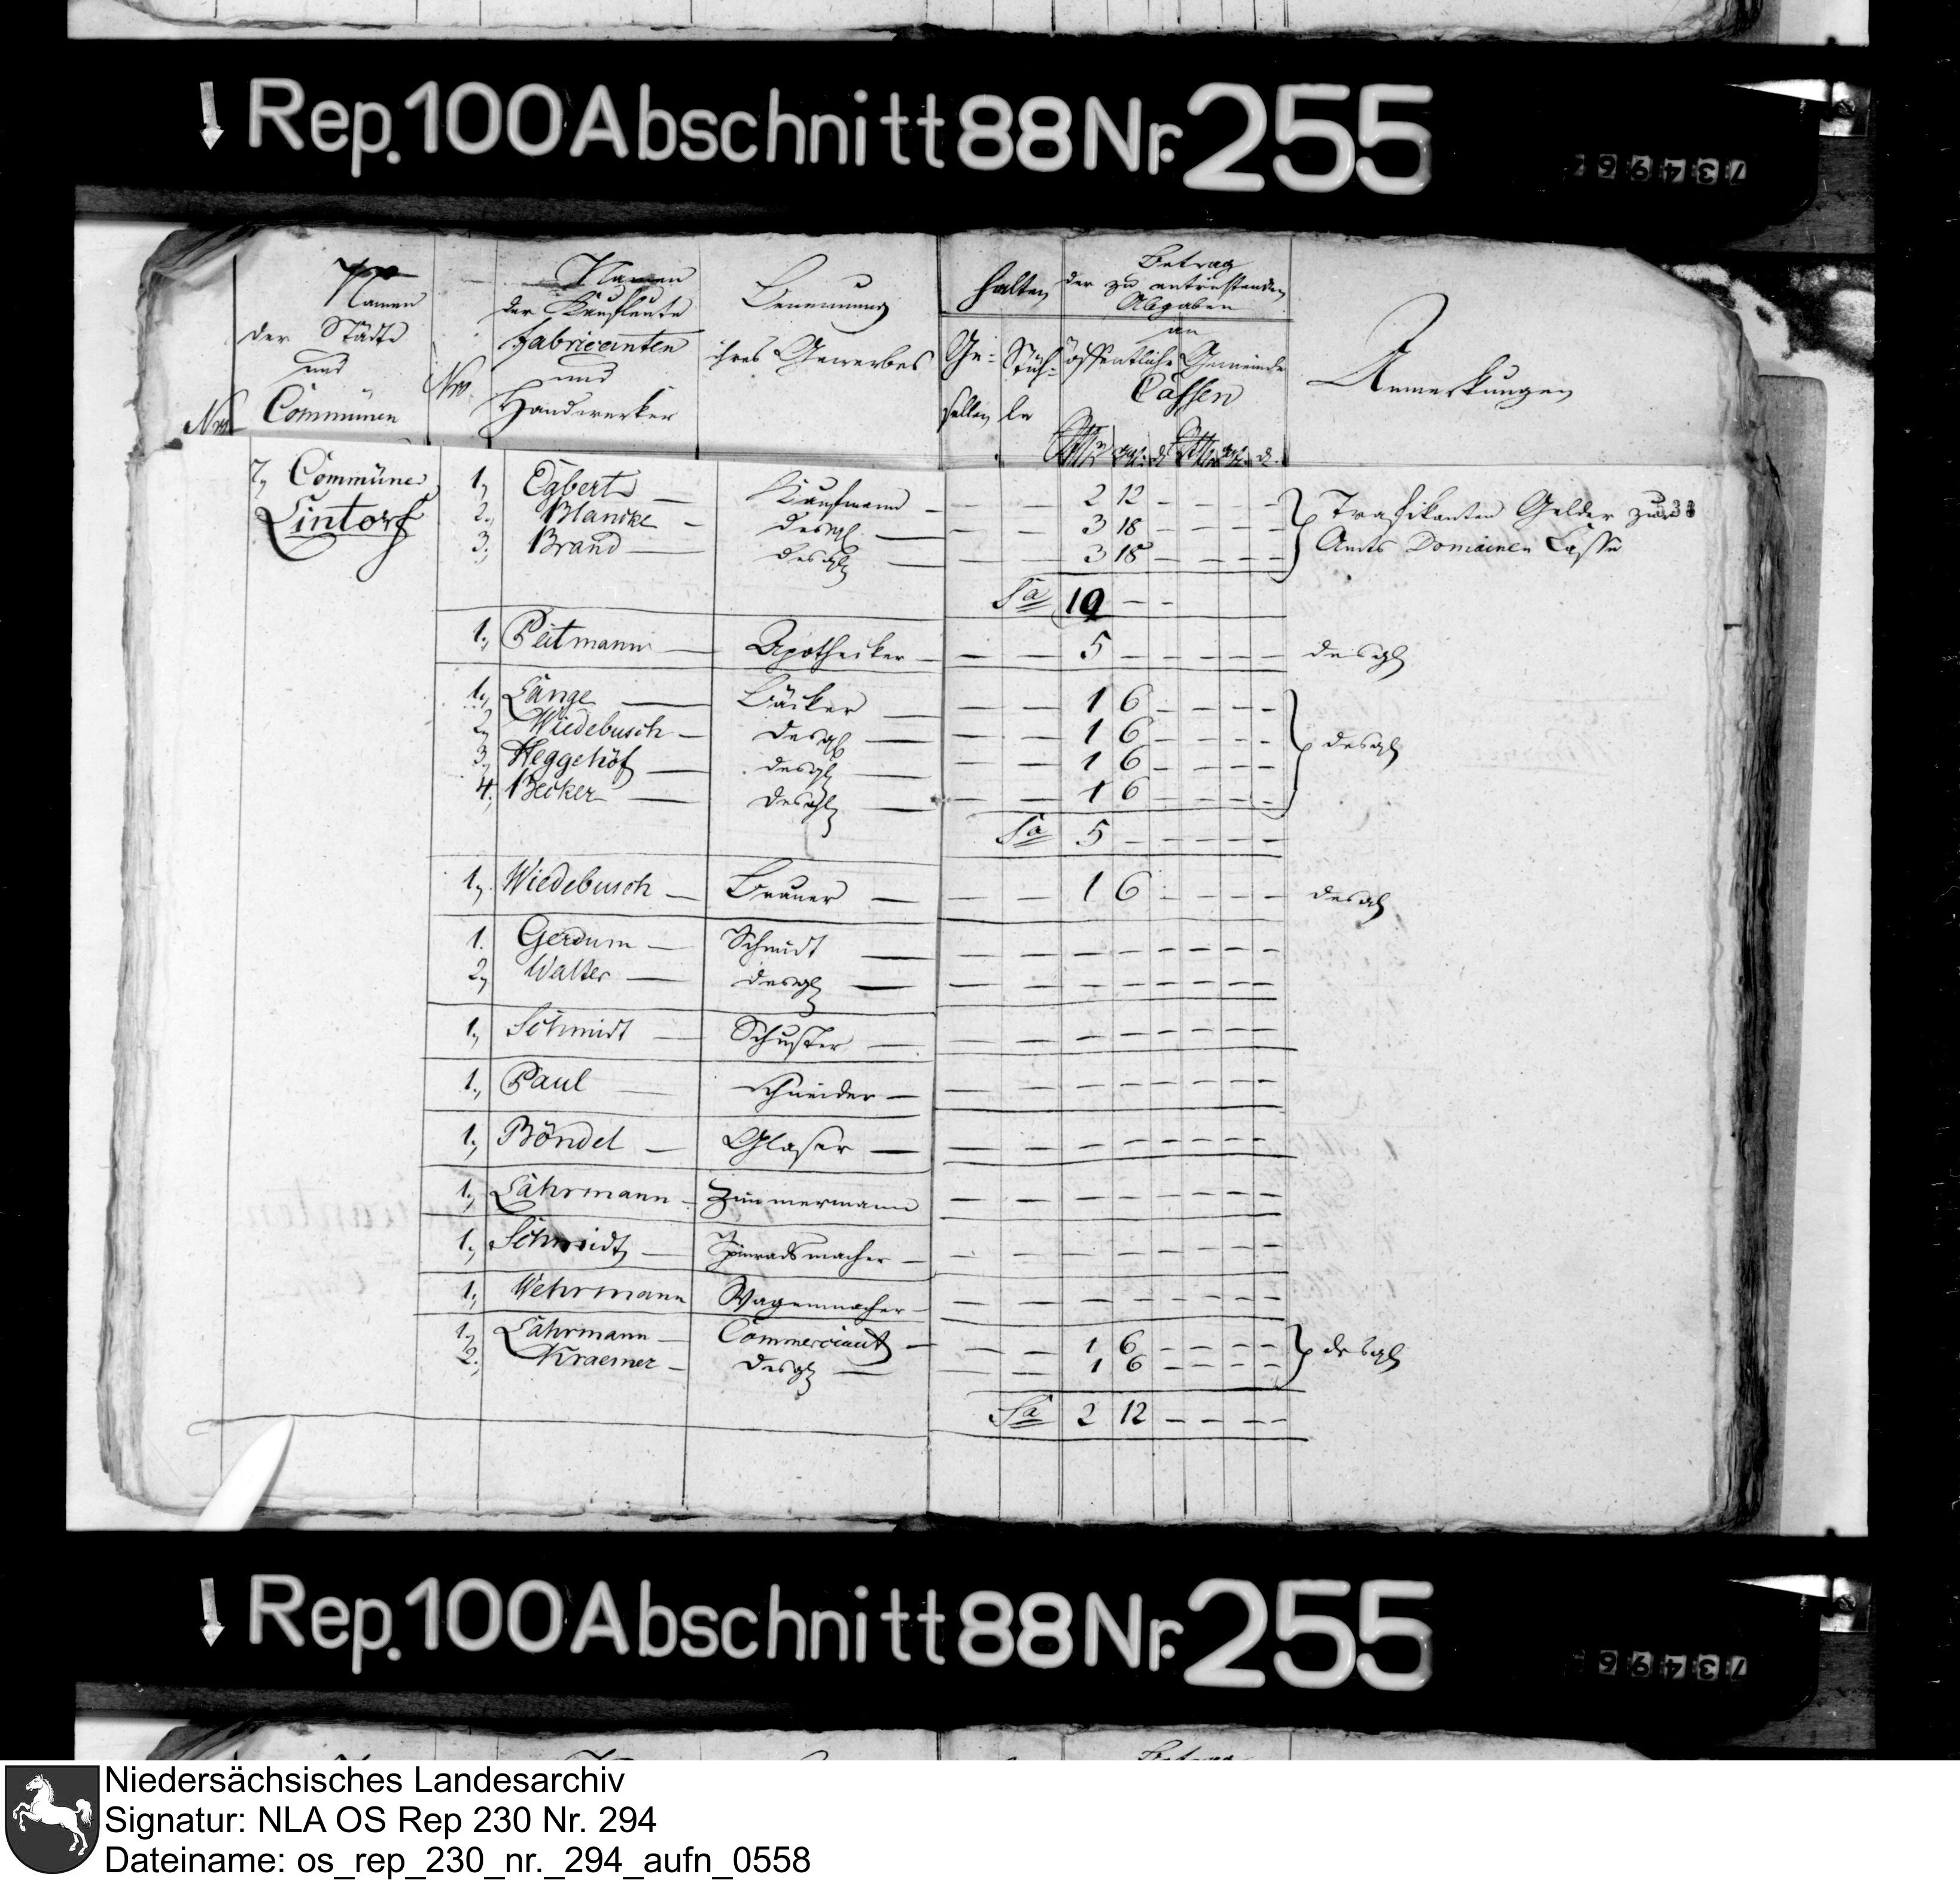 Rep. 100 Abschnitt 88 Nr. 255
734967
Namen der Städte und Communen
Nro
Namen der Kaufleute Fabricanten und Handwerker
Benennung ihres Gewerbes
halten
Ge-sellen
Stüh-le
Betrag der zu entrichtenden Abgaben an
öffentliche Gemeinde
Cassen
Anmerkungen
7, Commüne Lintorf
1, Egberts — Kaufmann — — — 2 12 - - - -
2., Blancke — desgl. — — — 3 18 - - - -
3., Brand — desgl — — — 3 18 - - - -
Trafikanten Gelder zur
Amts Domainen Casse
Sa 10 - -
1., Peitmann — Apotheker — — — 5 - - - - - desgl
1., Lange — Bäcker — — — 1 6 - - - -
2, Wiedebusch — desgl — — — 1 6 - - - -
3, Heggehof — desgl — — — 1 6 - - - - desgl
4., Becker — desgl — — — 1 6 - - - -
Sa 5 - - - - -
1, Wiedebusch — Brauer — — — 1 6 - - - - desgl
1. Gerdum — Schmidt — — — - - - - - -
2, Walter — desgl — — — - - - - - -
1, Schmidt — Schuster — — — - - - - - -
1., Paul — Schneider — — — - - - - - -
1., Böndel — Glaser — — — - - - - - -
1., Lährmann — Zimmermann — — - - - - - -
1., Schmidt — Spinradsmacher — — — - - - - - -
1., Wehrmann Wagenmacher — — — - - - - - -
1, Lahrmann — Commerciant — — — 1 6 - - - -
2., Kraemer — desgl — — — 1 6 - - - - desgl
Sa 2 12 - - - -
Rep. 100 Abschnitt 88 Nr. 255
734967
Niedersächsisches Landesarchiv
Signatur: NLA OS Rep 230 Nr. 294
Dateiname: os_rep_230_nr._294_aufn_0558